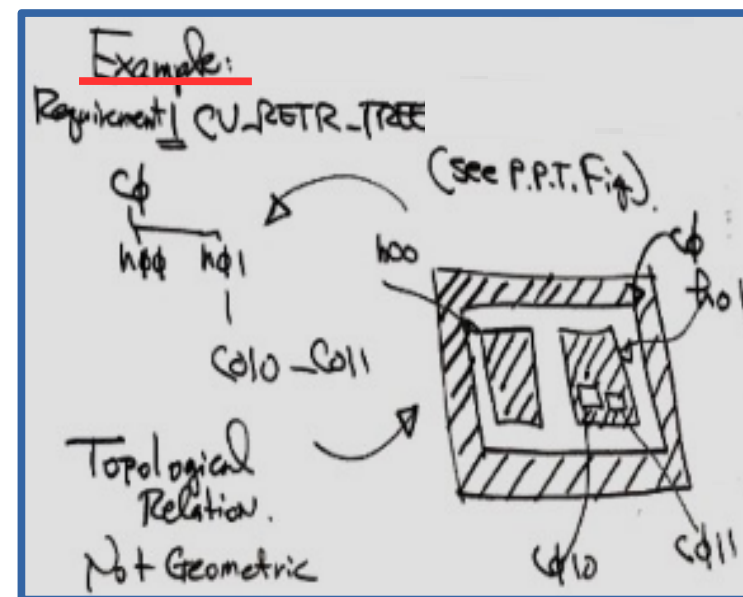 Example:
Requirement 1 CV_RETR_TREE
(see P.P.T. Fig.)
cϕ
hϕϕ hϕ1
c010 - c011
Topological
Relation.
Not Geometric
h00
cϕ
h01
cϕ10
cϕ11